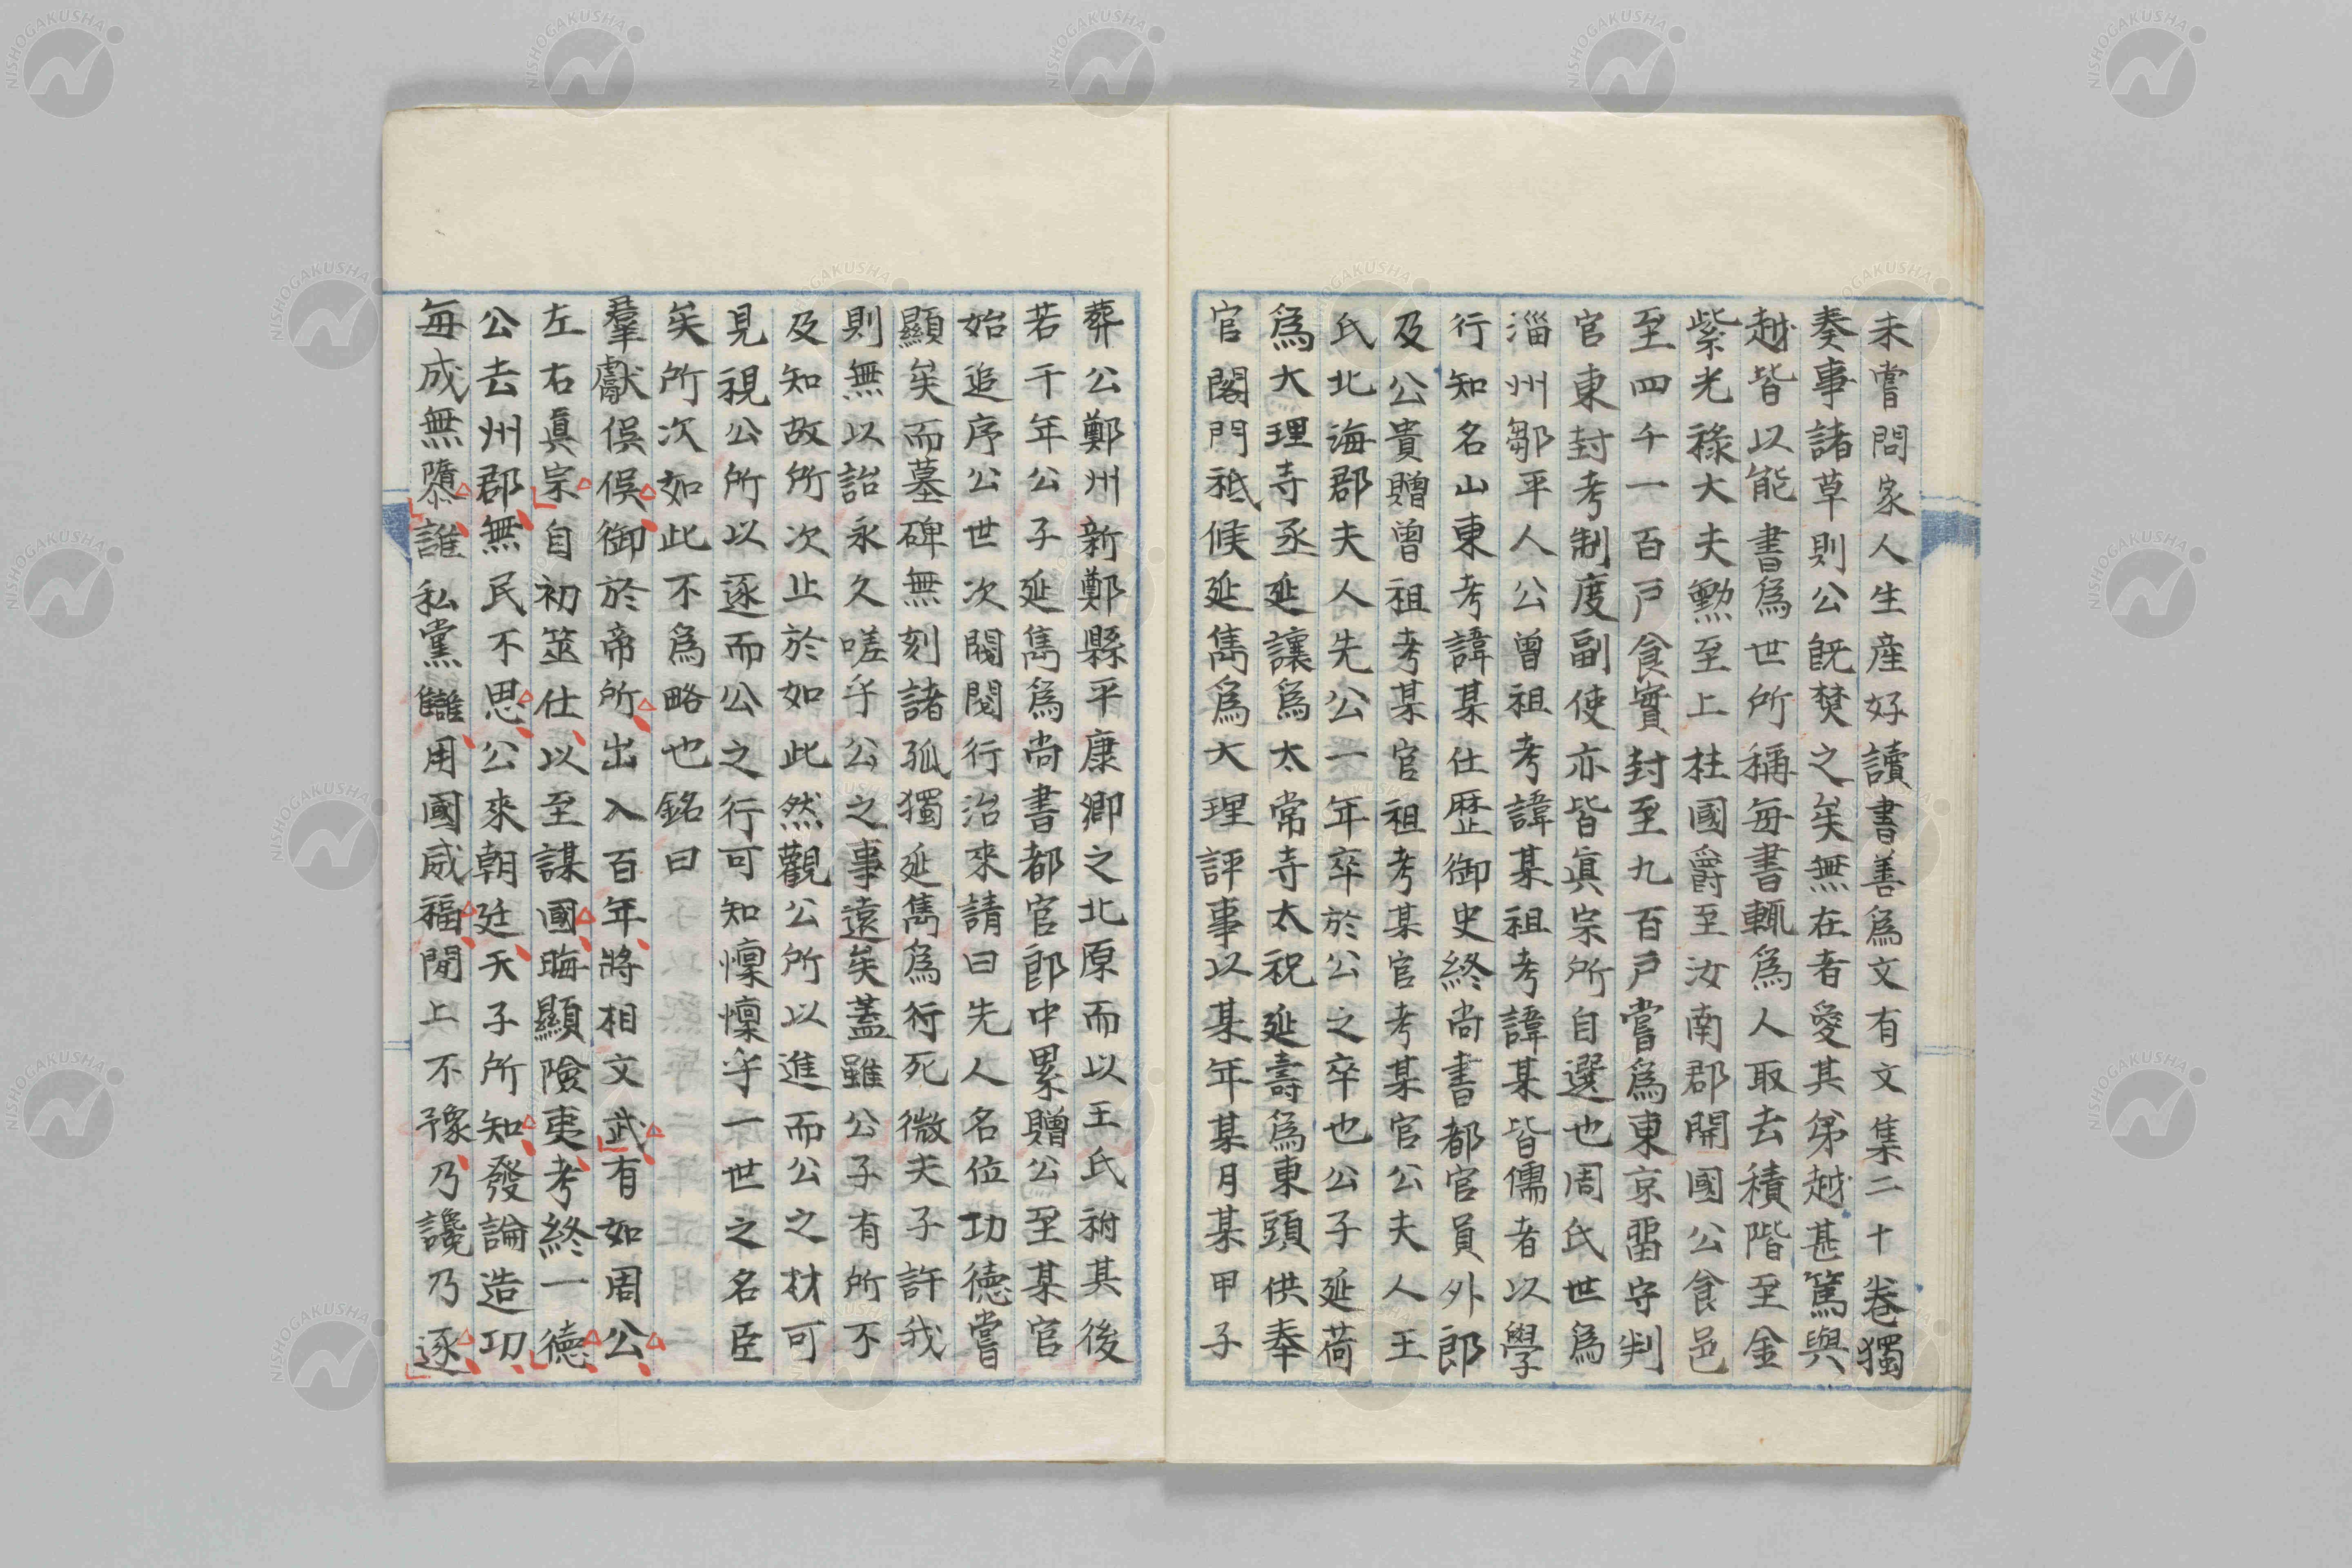 未嘗問家人生産好讀書善爲文有文集二十卷獨
奏事諸草則公既焚之矣無在者愛其弟越甚篤與
越皆以能書爲世所稱每書輒爲人取去積階至金
紫光祿大夫勲至上柱國爵至汝南郡開國公食邑
至四千一百戸食實封至九百戸嘗爲東京畱守判
官東封考制度副使亦皆眞宗所自選也周氏世爲
淄州鄒平人公曾祖考諱某祖考諱某皆儒者以學
行知名山東考諱某仕歴御史終尚書都官員外郎
及公貴贈曾祖考某官祖考某官考某官公夫人王
氏北海郡夫人先公一年卒於公之卒也公子延荷
爲大理寺丞延讓爲太常寺太祝延壽爲東頭供奉
官閤門祗候延雋爲大理評事以某年某月某甲子
葬公鄭州新鄭縣平康鄉之北原而以王氏祔其後
若干年公子延雋爲尚書都官郎中累贈公至某官
始追序公世次閥閱行治來請曰先人名位功德嘗
顯矣而墓碑無刻諸孤獨延雋爲行死微夫子許我
則無以詒永久嗟乎公之事遠矣蓋雖公子有所不
及知故所次止於如此然觀公所以進而公之材可
見視公所以逐而公之行可知懍懍乎一世之名臣
矣所次如此不爲略也銘曰
羣獻俣俣御於帝所出入百年將相文武有如周公
左右眞宗自初筮仕以至謀國晦顯險夷考終一德
公去州郡無民不思公來朝廷天子所知發論造功
每成無隳誰私黨讎用國威福閒上不豫乃讒乃逐
NISHOGAKUSHA